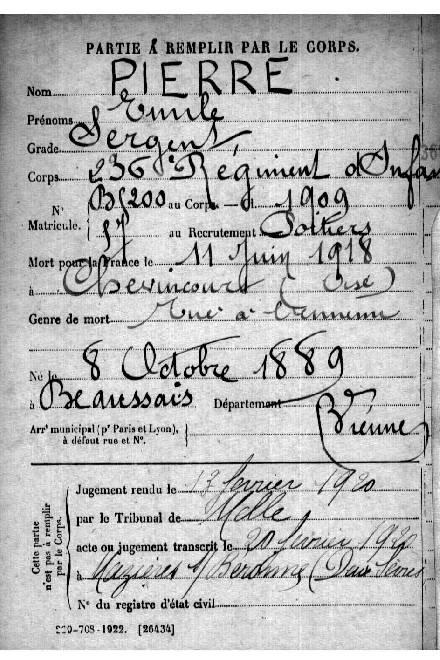 PARTIE À REMPLIR PAR LE CORPS.
Nom PIERRE
Prénoms Emile
Grade Sergent
Corps 236e Régiment d'Infan
N° Matricule. au Corps. — Cl. 1909
17 au Recrutement Poitiers
Mort pour la France le 11 Juin 1918
à Chevincourt (Oise)
Genre de mort Tué à l'ennemi
Né le 8 Octobre 1889
à Beaussais Département Vienne
Arrt municipal (pr Paris et Lyon),
à défaut rue et N°.
Cette partie n'est pas à remplir par le Corps.
Jugement rendu le 13 février 1920
par le Tribunal de Melle
acte ou jugement transcrit le 20 février 1920
à Mazières s/ Beronne (Deux Sèvres
N° du registre d'état civil
-708-1922. [26434]